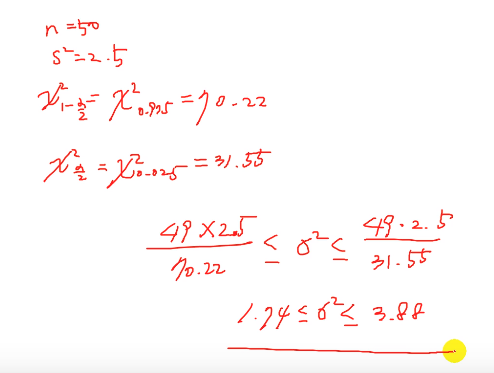 n = 50
s² = 2.5
χ²₁₋α/₂ = χ²₀.₉₇₅ = 70.22
χ²α/₂ = χ²₀.₀₂₅ = 31.55
49 × 2.5 / 70.22 ≤ σ² ≤ 49 · 2.5 / 31.55
1.74 ≤ σ² ≤ 3.88